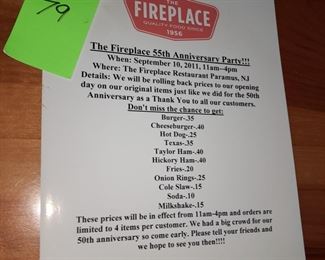 79
THE
FIREPLACE
QUALITY FOOD SINCE
1956
The Fireplace 55th Anniversary Party!!!
When: September 10, 2011, 11am--4pm
Where: The Fireplace Restaurant Paramus, NJ
Details: We will be rolling back prices to our opening
day on our original items just like we did for the 50th
Anniversary as a Thank You to all our customers.
Don't miss the chance to get:
Burger-.35
Cheeseburger-.40
Hot Dog-.25
Texas-.35
Taylor Ham-.40
Hickory Ham-.40
Fries-.20
Onion Rings-.25
Cole Slaw-.15
Soda-.10
Milkshake-.15
These prices will be in effect from 11am-4pm and orders are
limited to 4 items per customer. We had a big crowd for our
50th anniversary so come early. Please tell your friends and
we hope to see you then!!!!